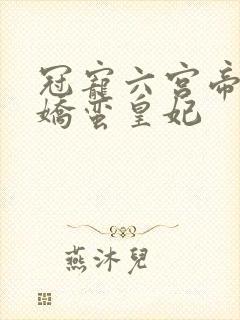 冠寵六宮帝
嬌蠻皇妃
燕沐兒